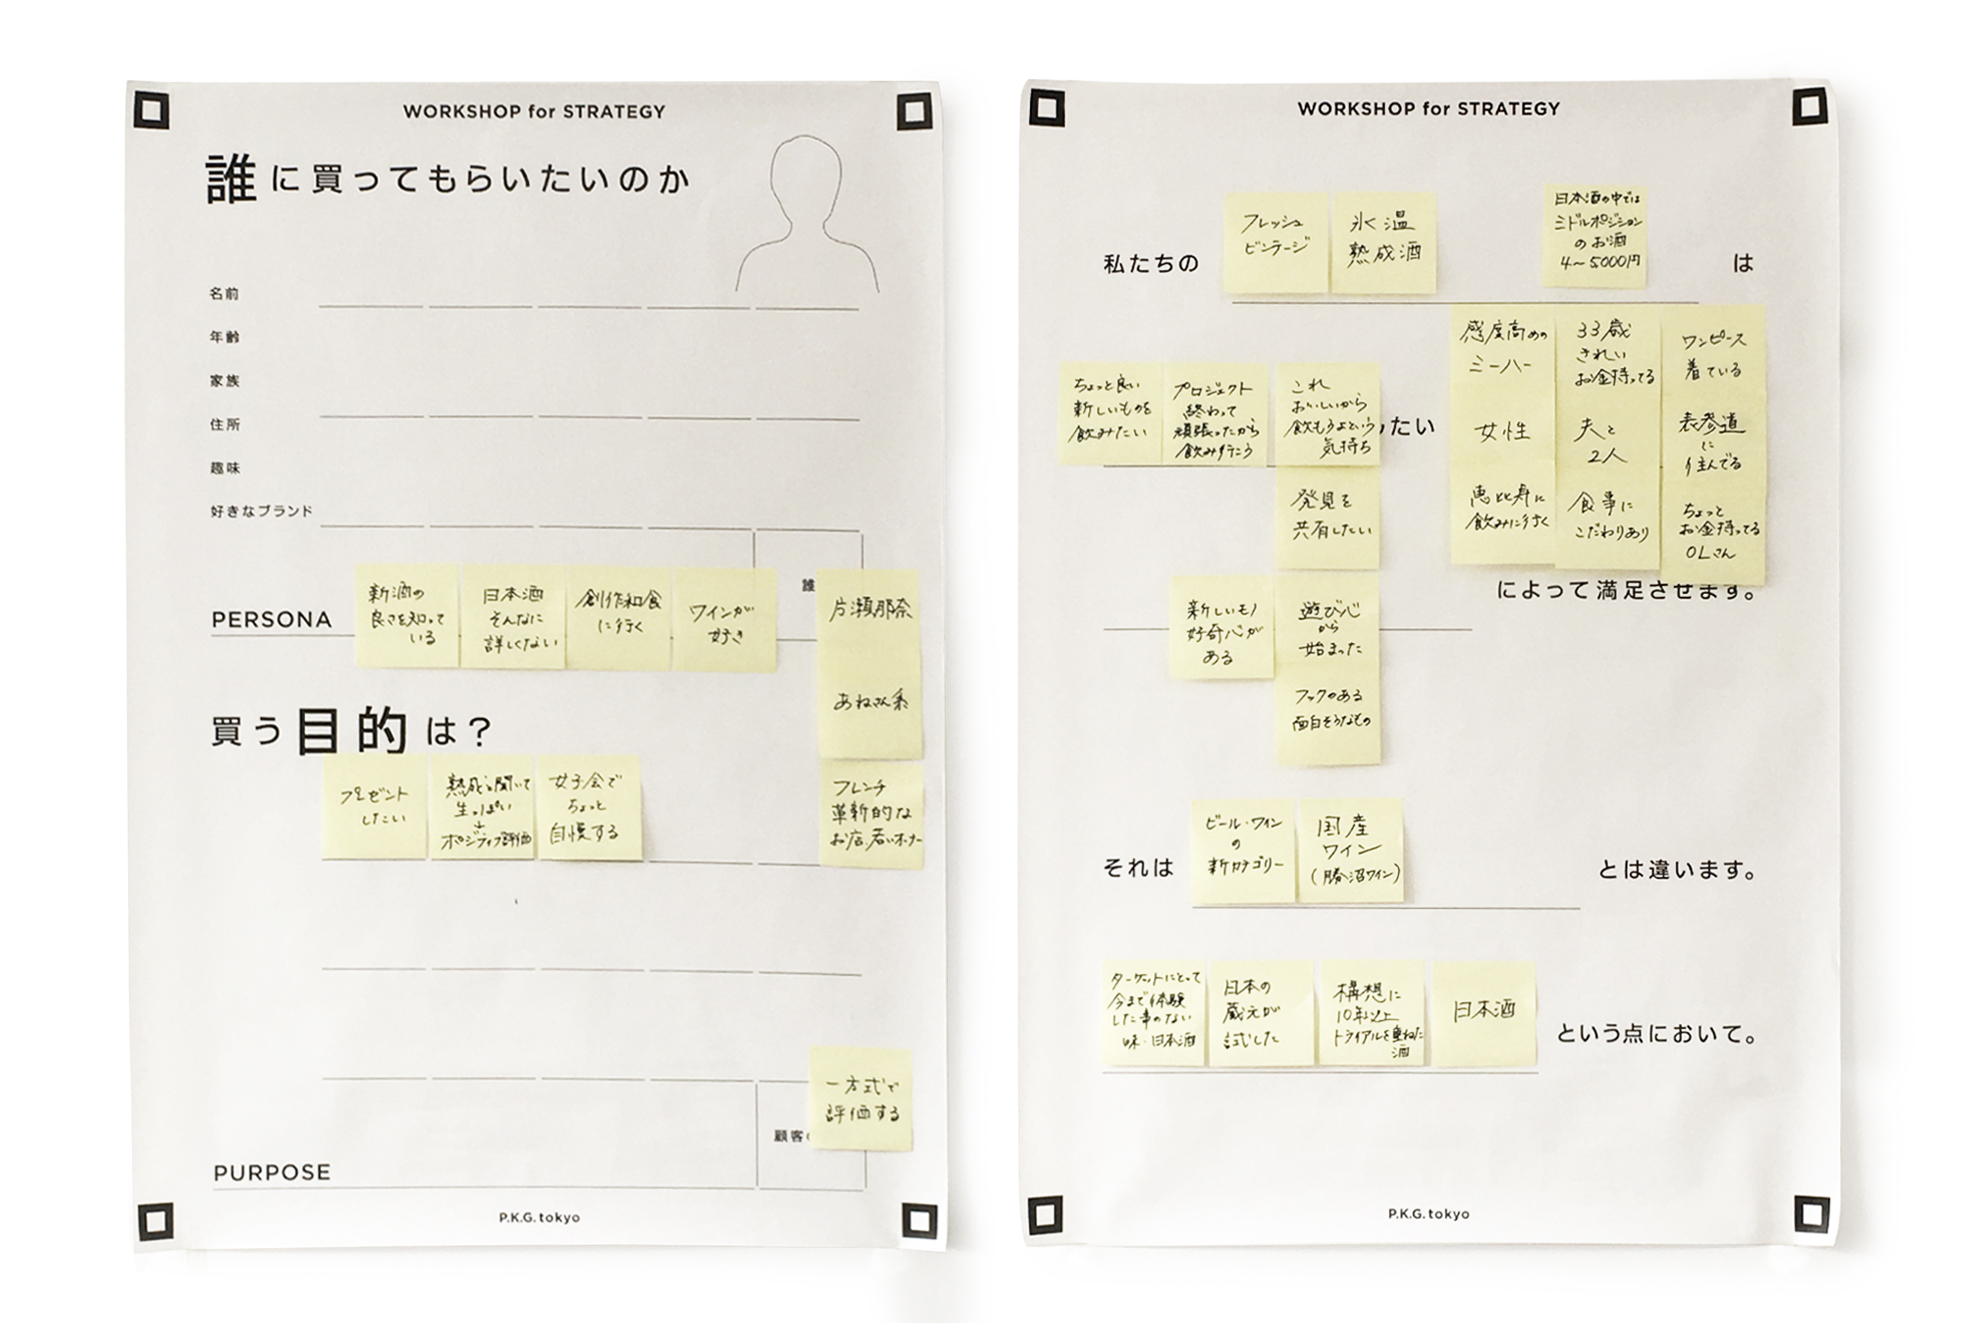 WORKSHOP for STRATEGY
誰に買ってもらいたいのか
名前
年齢
家族
住所
趣味
好きなブランド
誰
PERSONA
新酒の
良さを知って
いる
日本酒
そんなに
詳しくない
創作和食
に行く
ワインが
好き
片瀬那奈
あねさん系
フレンチ
革新的な
お店、若いオーナー
買う目的は?
プレゼント
したい
熟成と聞いて
生っぽい
↓
ポジティブ評価
女子会で
ちょっと
自慢する
一方式で
評価する
顧客
PURPOSE
P.K.G.tokyo
WORKSHOP for STRATEGY
私たちの
フレッシュ
ビンテージ
氷温
熟成酒
日本酒の中では
ミドルポジション
のお酒
4〜5000円
は
ちょっと良い
新しいものを
飲みたい
プロジェクト
終わって
頑張ったから
飲み行こう
これ
おいしいから
飲もうよという
気持ち
たい
感度高めの
ミーハー
33歳
きれい
お金持ってる
ワンピース
着ている
女性
夫と
2人
表参道
に
住んでる
恵比寿に
飲みに行く
食事に
こだわりあり
ちょっと
お金持ってる
OLさん
発見を
共有したい
新しいモノ
好奇心が
ある
遊び心
から
始まった
フックのある
面白そうなもの
によって満足させます。
それは
ビール・ワイン
の
新カテゴリー
国産
ワイン
(勝沼ワイン)
とは違います。
ターゲットにとって
今まで体験
した事のない
味・日本酒
日本の
蔵元が
試した
構想に
10年以上
トライアルを重ねた
酒
日本酒
という点において。
P.K.G.tokyo